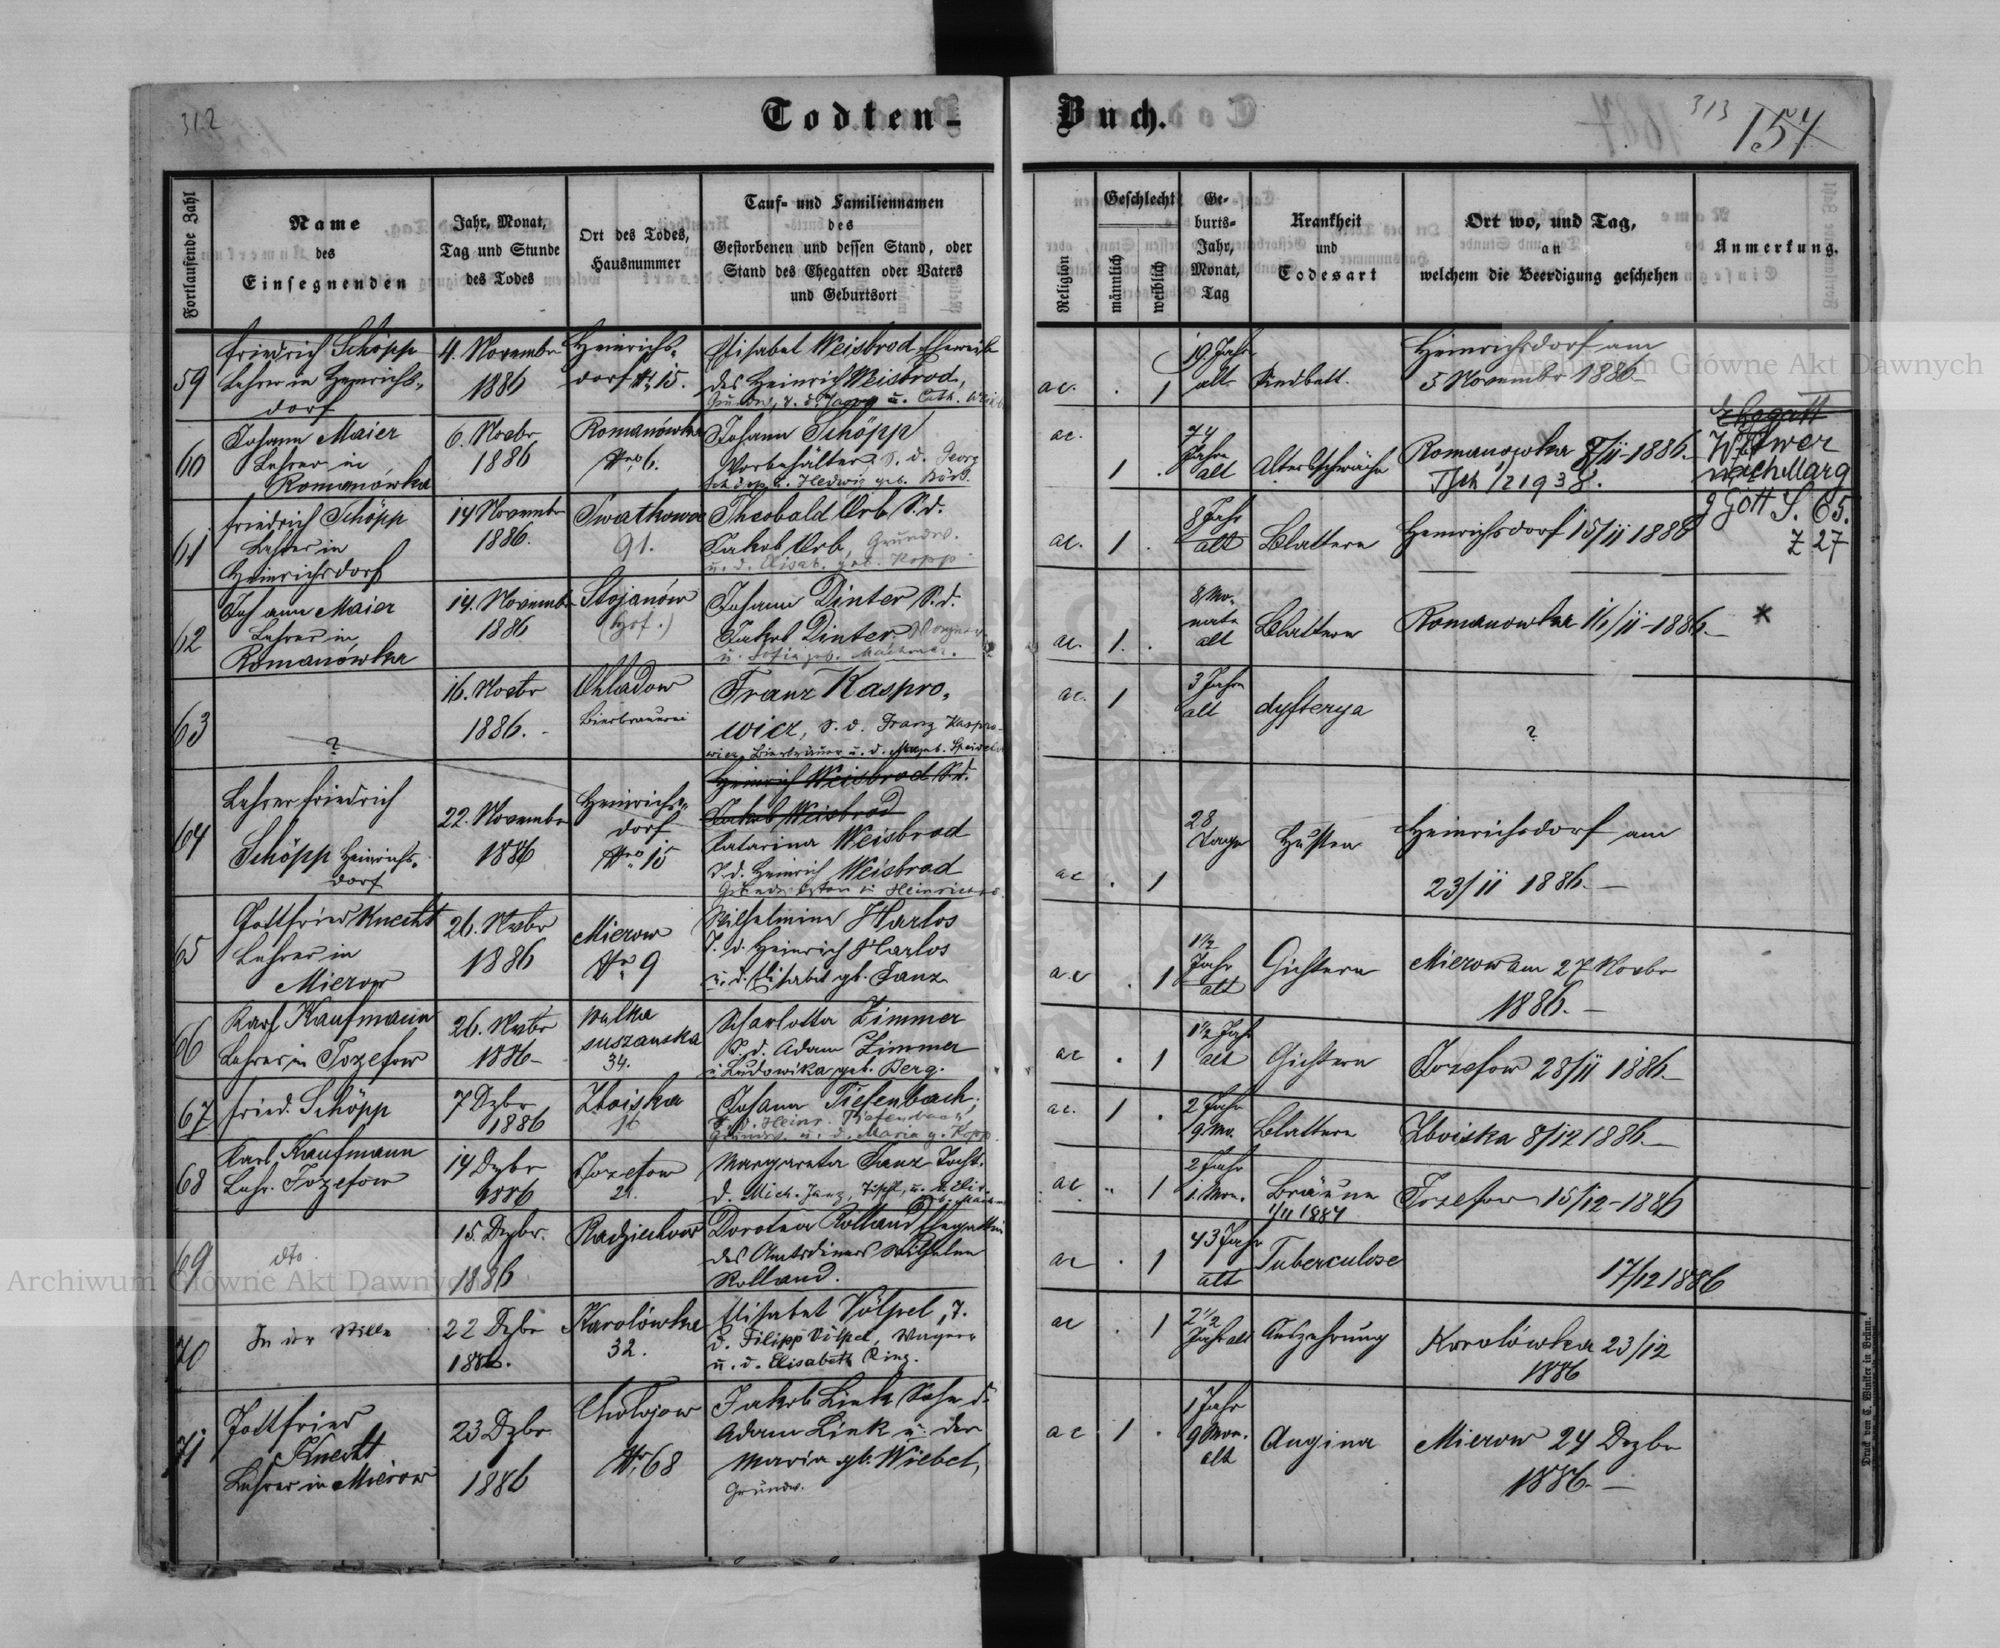 312
Todten-
Buch.
313
157
Fortlaufende Zahl
Name
des
Einsegnenden
Jahr, Monat,
Tag und Stunde
des Todes
Ort des Todes,
Hausnummer
Tauf- und Familiennamen
des
Gestorbenen und dessen Stand, oder
Stand des Ehegatten oder Vaters
und Geburtsort
Religion
Geschlecht
männlich
weiblich
Ge-
burts-
Jahr,
Monat,
Tag
Krankheit
und
Todesart
Ort wo, und Tag,
an
welchem die Beerdigung geschehen
Anmerkung.
59
Friedrich Schöpp
Lehrer in Heinrichs-
dorf
4. Novembr
1886
Heinrichs-
dorf No 15.
Elisabet Weisbrod Eheweib
des Heinrich Weisbrod,
ac.
. 1
19. Jahr
alt
Kindbett.
Heinrichsdorf am
5 Novembr 1886
60
Johann Maier
Lehrer in
Romanówka
6. Novbr
1886
Romanówka
Nro 6.
Johann Schöpp
Vorbehälter, S. d. Georg
Schöpp u. Hedwig geb.
ac.
1 .
74
Jahre
alt
Altersschwäche
Romanowka 8/11-1886.
Witwer
nach Marg
g Gott S. 65.
Z 27
61
Friedrich Schöpp
Lehrer in
Heinrichsdorf
14 Novembr
1886.
91.
Theobald Orb S. d.
Jakob Orb, Grundw.
u. d. Elisab. geb. Kopp
ac.
1 .
8 Jahr
alt
Blattern
Heinrichsdorf 15/11 1886
62
Johann Maier
Lehrer in
Romanówka
14. Novembr
1886
Stojanów
(Hof.)
Johann Dinter S. d.
Jakob Dinter
u. Sofia geb.
ac.
1 .
8 Mo-
nate
alt
Blattern
Romanowka 16/11-1886
*
63
?
16. Novbr
1886.
Chladow
Bierbrauerei
Franz Kaspro-
wicz, S. d. Franz Kaspro-
wicz, Bierbrauer u. d.
ac.
1
3 Jahre
alt
dyfterya
?
64
Lehrer Friedrich
Schöpp Heinrichs-
dorf
22. Novembr
1886
Heinrichs-
dorf
Nro 15
Heinrich Weisbrod S. d.
Jakob Weisbrod
Katarina Weisbrod
T. d. Heinrich Weisbrod
ac
. 1
28
Tage
Husten
Heinrichsdorf am
23/11 1886.
65
Gottfried Knecht
Lehrer in
Mierow
26. Novbr
1886
Mierow
No 9
Wilhelmine Harlos
T. d. Heinrich Harlos
u. d. Elisabet gb. Janz
a.c
. 1
1 1/2
Jahr
alt
Gichtern
Mierow am 27 Novbr
1886.
66
Karl Kaufmann
Lehrer in Jozefow
26. Novbr
1886
Wulka
suszanska
34.
Scharlotta Zimmer
T. d. Adam Zimmer
u. Ludowika geb. Berg.
ac
. 1
1 1/2 Jahr
alt
Gichtern
Jozefow 28/11 1886
67
Fried. Schöpp
7 Dzbr
1886
Zboiska
Johann Tiefenbach,
S. d. Heinr. Tiefenbach,
Grundw. u. d. Maria g. Kopp
ac.
1 .
2 Jahr
9 Mo.
Blattern
Zboiska 8/12 1886
68
Karl Kaufmann
Lehr. Jozefow
14 Dzbr
1886
Jozefow
2.
Margareta Janz Tocht.
d. Mich. Janz,
ac
" 1
2 Jahr
1 Mon.
Bräune
1/11 1884
Jozefow 15/12-1886
69
dto
15. Dezbr.
1886
Radziechow
Dorotea Rolland Ehegattin
des Amtsdieners Wilhelm
Rolland.
ac
. 1
43 Jahr
alt
Tuberculose
17/12 1886
70
In der Stille
22 Dezbr
1886.
Karolówka
32.
Elisabet Völpel, T.
d. Filipp Völpel, Wagner
u. d. Elisabeth Ring.
ac
. 1
2 1/2
Jahr alt
Auszehrung
Karolówka 23/12
1886
71
Gottfried
Knecht
Lehrer in Mierow
23 Dzbr
1886
Cholojow
No 68
Jakob Link Sohn d.
Adam Link u. der
Maria gb. Wiebel,
Grundw.
ac
1 .
1 Jahr
9 Mon.
alt
Angina
Mierow 24 Dezbr
1886.
Druck von C. Winiker in Brünn.
Archiwum Główne Akt Dawnych
Archiwum Główne Akt Dawnych